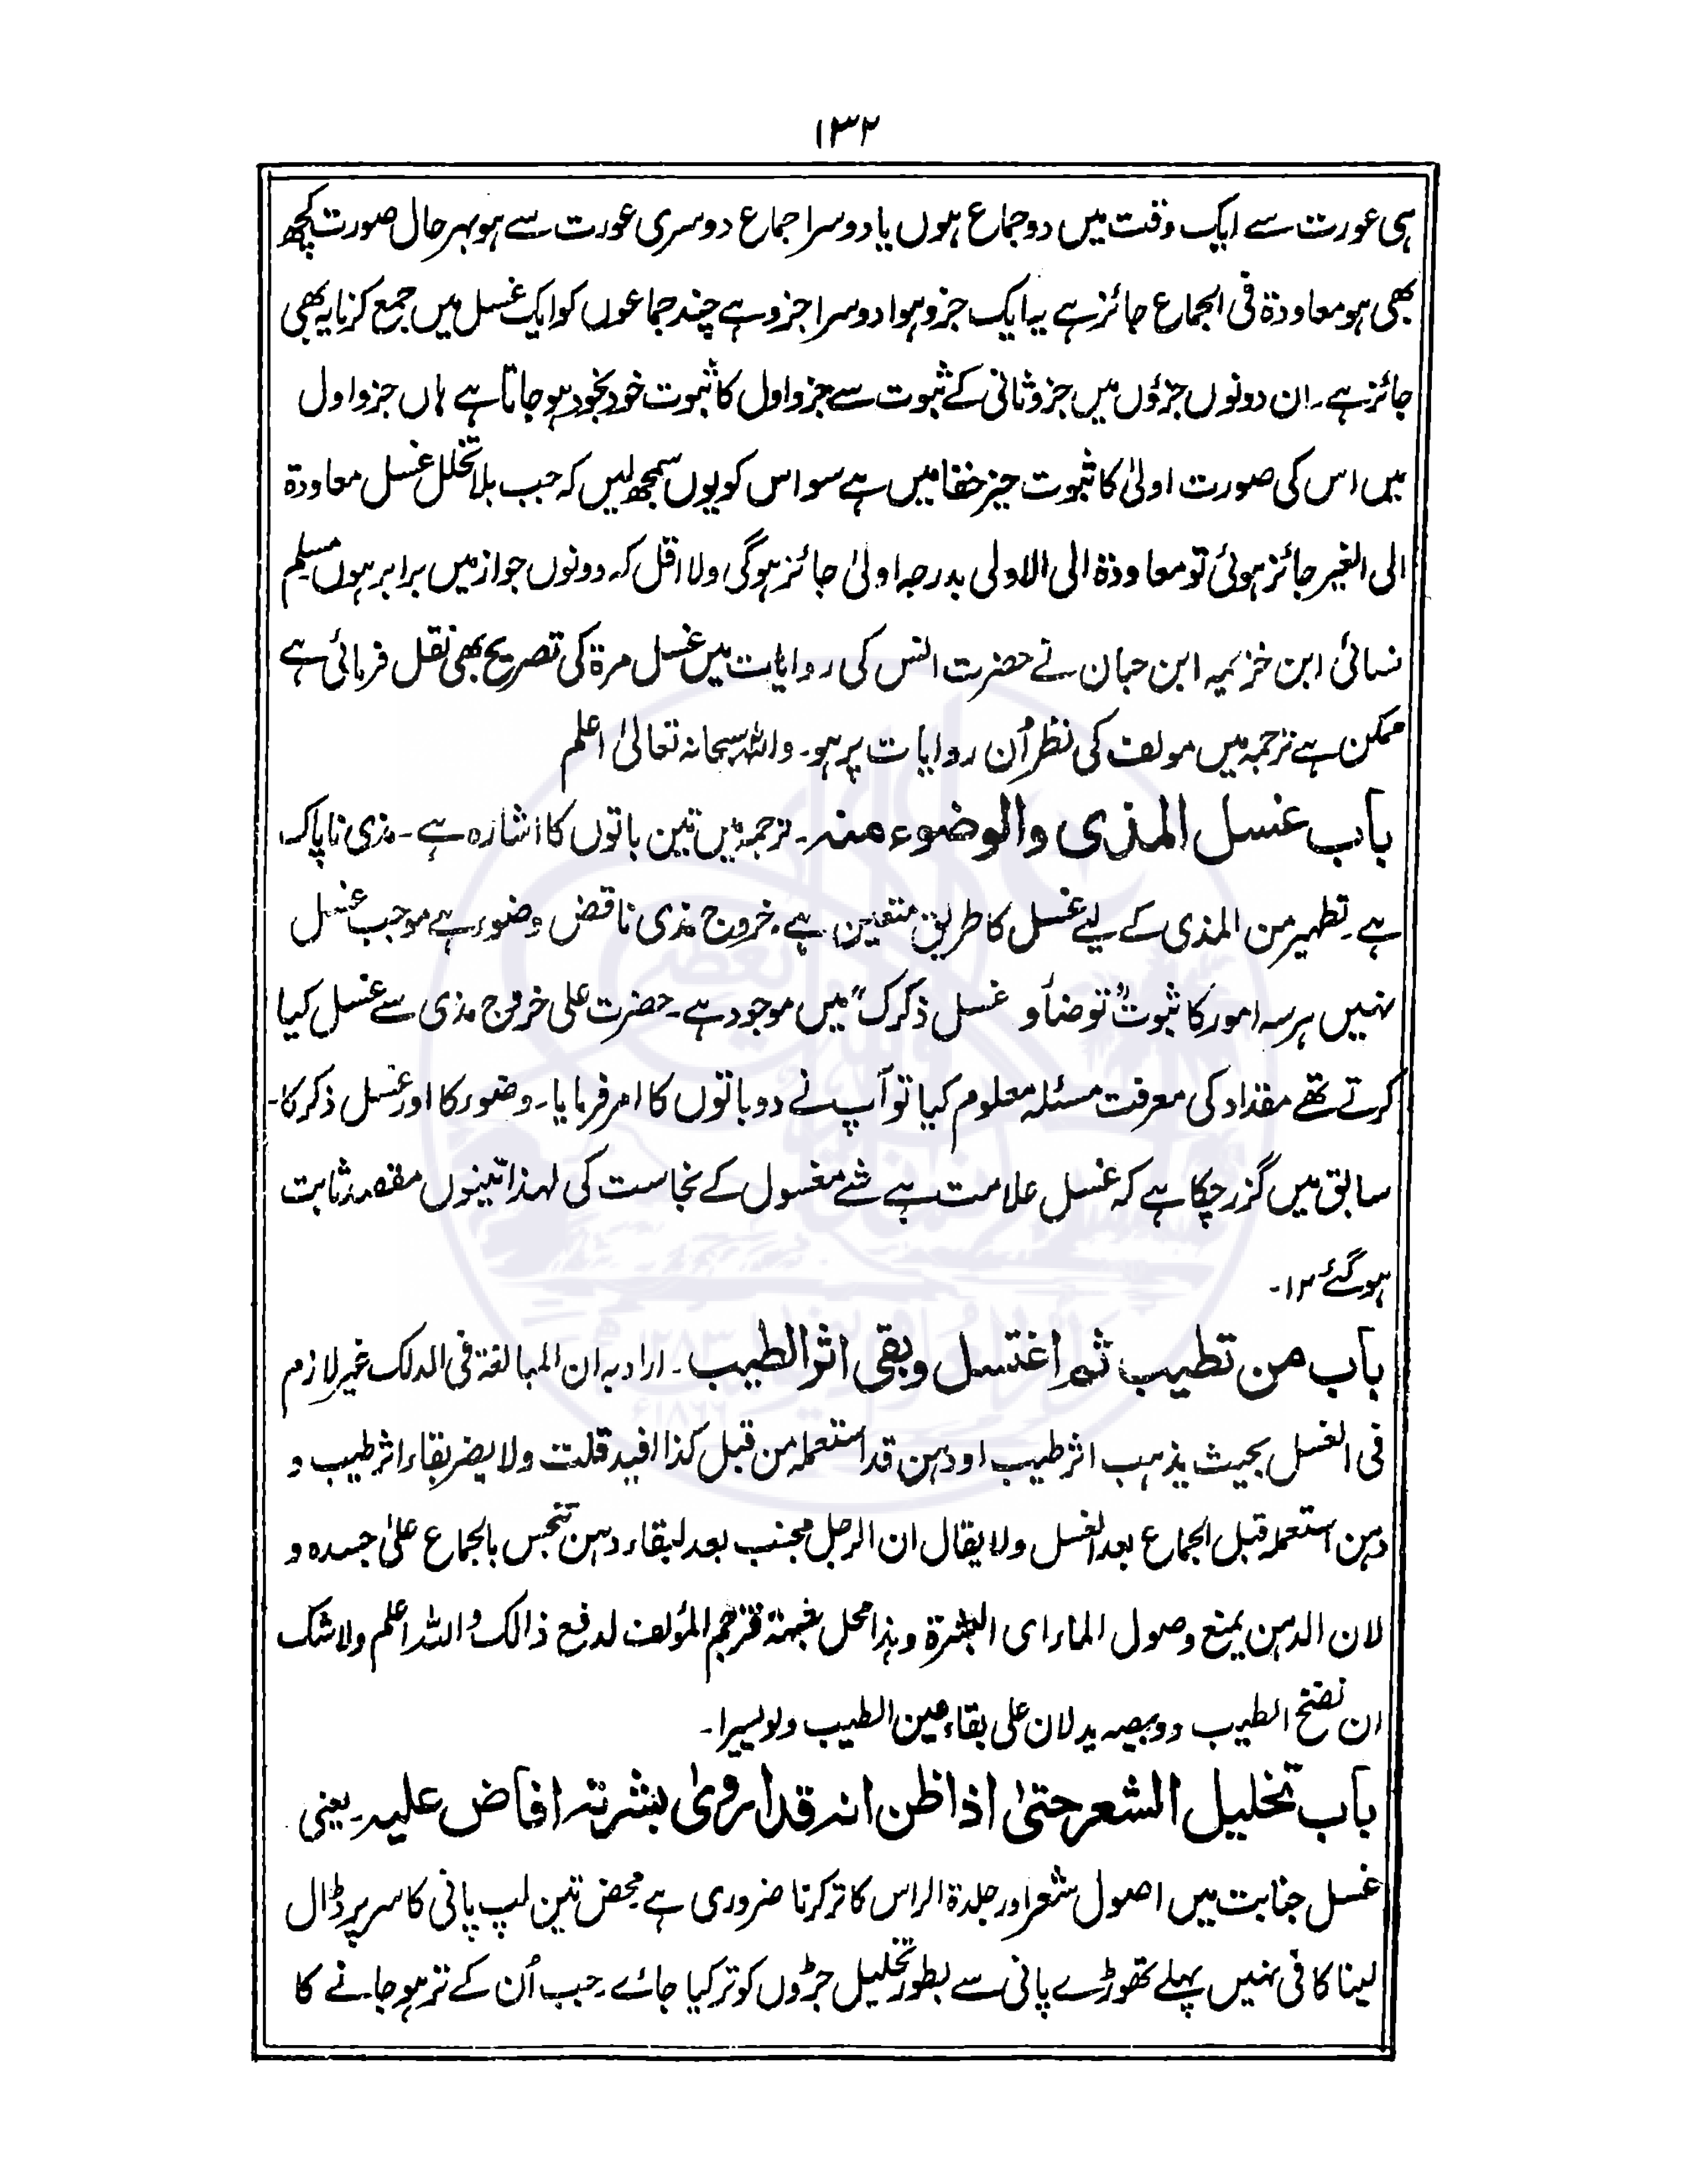 ۱۳۲
ہی عورت سے ایک وقت میں دو جماع ہوں یا دوسرا جماع دوسری عورت سے ہو بہر حال صورت کچھ
بھی ہو معاودۃ فی الجماع جائز ہے یہ ایک جزو ہوا دوسرا جزو ہے چند جماعوں کو ایک غسل میں جمع کرنا یہ بھی
جائز ہے۔ ان دونوں جزؤں میں جزو ثانی کے ثبوت سے جزو اول کا ثبوت خود بخود ہو جاتا ہے ہاں جزو اول
میں اس کی صورت اولیٰ کا ثبوت حیز خفا میں ہے سو اس کو یوں سمجھ لیں کہ جب بلا تخلل غسل معاودۃ
الی الغیر جائز ہوئی تو معاودۃ الی الاولی بدرجہ اولیٰ جائز ہوگی ولا اقل کہ دونوں جواز میں برابر ہوں مسلم
نسائی ابن خزیمہ ابن حبان نے حضرت انس کی روایات میں غسل مرۃ کی تصریح بھی نقل فرمائی ہے
ممکن ہے ترجمہ میں مولف کی نظر اُن روایات پر ہو۔ واللہ سبحانہ تعالیٰ اعلم
باب غسل المذی والوضوء منہ۔ ترجمہ میں تین باتوں کا اشارہ ہے۔ مذی ناپاک
ہے۔ تطہیر من المذی کے لیے غسل کا طریق متعین ہے۔ خروج مذی ناقض وضوء ہے موجب غسل
نہیں ہر سہ امور کا ثبوت "توضأ و غسل ذکرک" میں موجود ہے۔ حضرت علی خروج مذی سے غسل کیا
کرتے تھے مقداد کی معرفت مسئلہ معلوم کیا تو آپ نے دو باتوں کا امر فرمایا۔ وضوء کا اور غسل ذکر کا۔
سابق میں گزر چکا ہے کہ غسل علامت ہے شئے مغسول کے نجاست کی لہذا تینوں مقصد ثابت
ہو گئے ۱۲۔
باب من تطیب ثم اغتسل وبقی اثر الطیب۔ اراد بہ ان المبالغۃ فی الدلک غیر لازم
فی الغسل بحیث یذہب اثر طیب او دہن قد استعملہ من قبل کذا افید قلت ولا یضر بقاء اثر طیب و
دہن استعملہ قبل الجماع بعد الغسل ولا یقال ان الرجل مجنب بعد لبقاء دہن تنجس بالجماع علیٰ جسدہ و
لان الدہن یمنع وصول الماء ای البشرۃ وہذا محل شبہۃ فترجم المؤلف لدفع ذالک واللہ اعلم ولا شک
ان نضح الطیب ووبیصہ یدلان علی بقاء عین الطیب ولو یسیرا۔
باب تخلیل الشعر حتیٰ اذا ظن انہ قد اروی بشرتہ افاض علیہ۔ یعنی
غسل جنابت میں اصول شعر اور جلدۃ الراس کا تر کرنا ضروری ہے محض تین لپ پانی کا سر پر ڈال
لینا کافی نہیں پہلے تھوڑے پانی سے بطور تخلیل جڑوں کو تر کیا جائے جب اُن کے تر ہو جانے کا